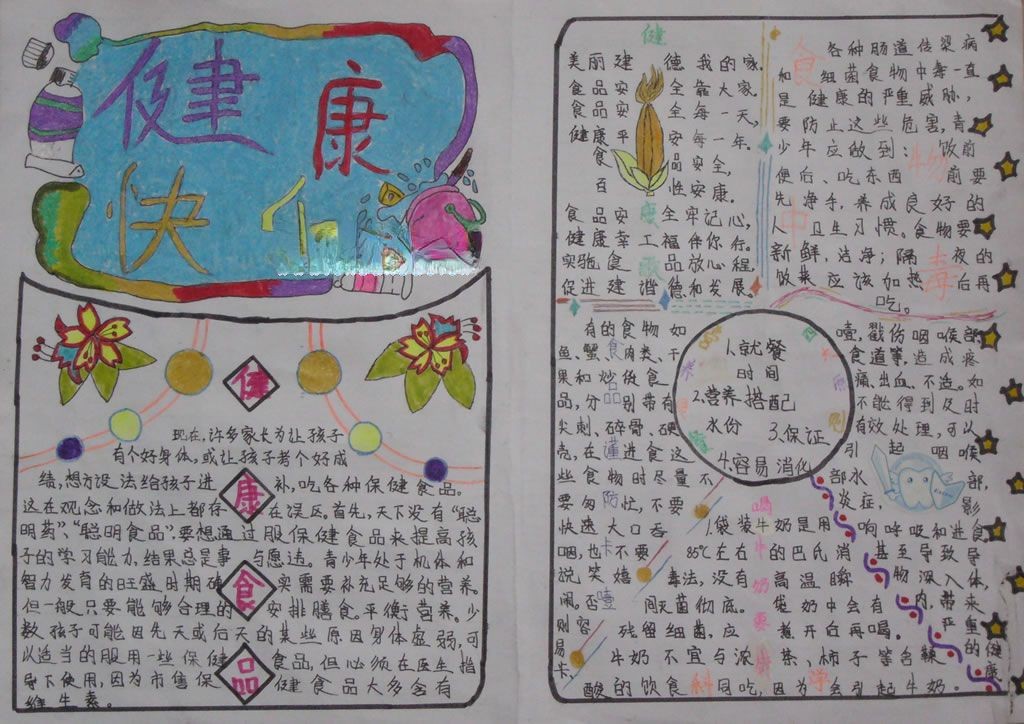 健康
快
健
康
食
品
现在,许多家长为让孩子
有个好身体,或让孩子考个好成
绩,想方设法给孩子进补,吃各种保健食品。
这在观念和做法上都存在误区。首先,天下没有“聪
明药”、“聪明食品”.要想通过服保健食品来提高孩
子的学习能力,结果总是事与愿违。青少年处于机体和
智力发育的旺盛时期确实需要补充足够的营养。
但一般只要能够合理的安排膳食。平衡营养。少
数孩子可能因先天或后天的某些原因身体虚弱,可
以适当的服用一些保健食品,但必须在医生指
导下使用,因为市售保健食品大多含有
维生素。
健
康
美丽建德我的家.
食品安全靠大家.
食品安全每一天,
健康平安每一年。
食品安全,
百姓安康。
食品安全牢记心,
健康幸福伴你行。
实施食品放心工程,
促进建德和谐发展。
食
物
中
毒
各种肠道传染病
和细菌食物中毒一直
是健康的严重威胁,
要防止这些危害,青
少年应做到:饭前
便后、吃东西前要
先净手,养成良好的
人卫生习惯。食物要
新鲜,洁净;隔夜的
饭菜应该加热后再
吃。
有的食物如
鱼、蟹、肉类、干
果和炒货食
品,分别带有
尖刺、碎骨、硬
壳,在进食这
些食物时尽量不
要匆忙,不要
快速大口吞
咽,也不要
说笑嬉
闹。否
则容
易卡、
噎,戳伤咽喉部、
食道等,造成疼
痛、出血、不适。如
不能得到及时
有效处理,可以
引起咽喉
部水部,
炎症,影
响呼吸和进食
甚至导致异
物深入体
内,带来
严重
的健
康
谨
食
品
防
卡
噎
1.就餐
时间
2.营养搭配
水份
3.保证
4.容易消化
喝
牛
奶
要
科
学
1.袋装牛奶是用
85℃左右的巴氏消
毒法,没有高温瞬
间灭菌彻底。袋奶中会有
残留细菌,应煮开后再喝。
牛奶不宜与浓茶、柿子等含鞣
酸的饮食同吃,因为会引起牛奶.